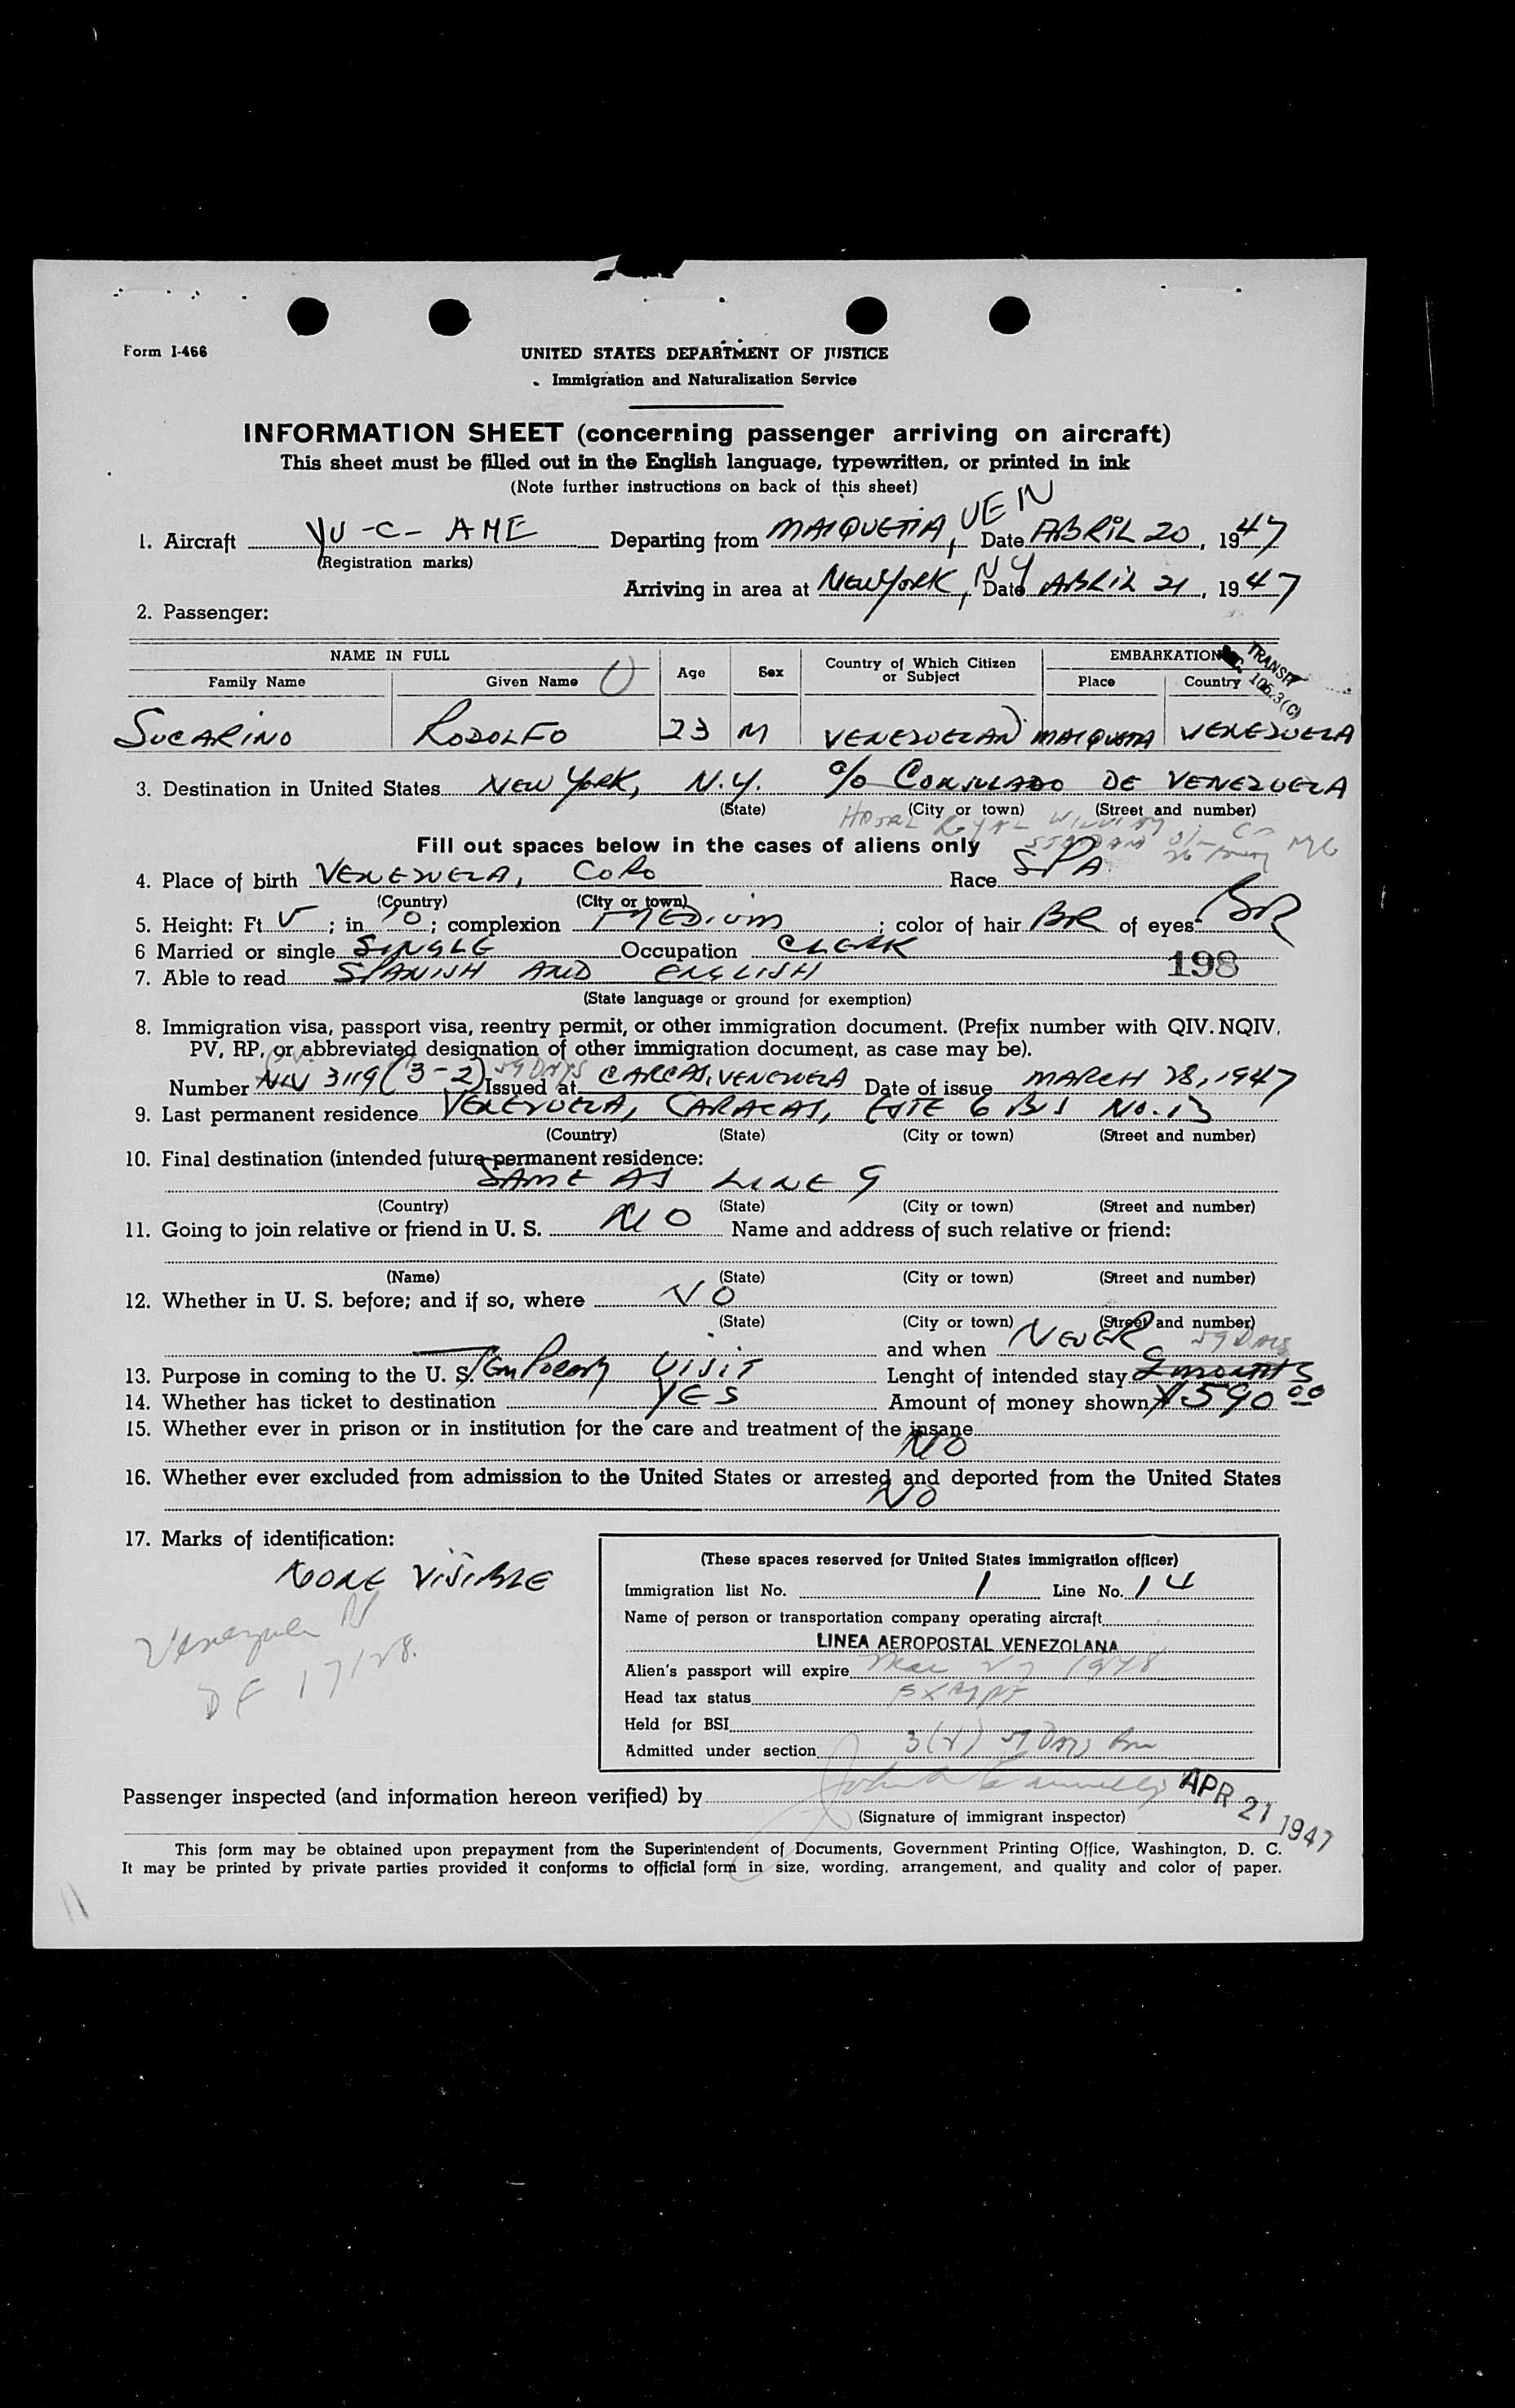 Form I-466
UNITED STATES DEPARTMENT OF JUSTICE
Immigration and Naturalization Service
INFORMATION SHEET (concerning passenger arriving on aircraft)
This sheet must be filled out in the English language, typewritten, or printed in ink
(Note further instructions on back of this sheet)
1. Aircraft YU-C-AME Departing from MAIQUETIA, VEN Date ABRIL 20, 1947
(Registration marks)
Arriving in area at NEW YORK, NY Date ABRIL 21, 1947
2. Passenger:
NAME IN FULL Age Sex Country of Which Citizen or Subject EMBARKATION
Family Name Given Name Place Country
TRANSIT
106.3(C)
SUCARINO RODOLFO 23 M VENEZUELAN MAIQUETIA VENEZUELA
3. Destination in United States NEW YORK, N.Y. c/o CONSULADO DE VENEZUELA
(State) (City or town) (Street and number)
HOTEL ROYAL
Fill out spaces below in the cases of aliens only
4. Place of birth VENEZUELA, CORO Race SPA
(Country) (City or town)
5. Height: Ft. 5; in 10; complexion MEDIUM; color of hair BR of eyes BR
6 Married or single SINGLE Occupation CLERK
198
7. Able to read SPANISH AND ENGLISH
(State language or ground for exemption)
8. Immigration visa, passport visa, reentry permit, or other immigration document. (Prefix number with QIV. NQIV,
PV, RP, or abbreviated designation of other immigration document, as case may be).
Number NIV 3119 (3-2) 59 DAYS Issued at CARCAS, VENEZUELA Date of issue MARCH 28, 1947
9. Last permanent residence VENEZUELA, CARACAS, ESTE 6 BIS NO. 13
(Country) (State) (City or town) (Street and number)
10. Final destination (intended future permanent residence:
SAME AS LINE 9
(Country) (State) (City or town) (Street and number)
11. Going to join relative or friend in U. S. NO Name and address of such relative or friend:
(Name) (State) (City or town) (Street and number)
12. Whether in U. S. before; and if so, where NO
(State) (City or town) (Street and number)
and when NEVER 59 Days
13. Purpose in coming to the U. S. Temporary VISIT Lenght of intended stay 2 months
14. Whether has ticket to destination YES Amount of money shown $590 00
15. Whether ever in prison or in institution for the care and treatment of the insane
NO
16. Whether ever excluded from admission to the United States or arrested and deported from the United States
NO
17. Marks of identification:
NONE VISIBLE
Venezuela N
DF 17128.
(These spaces reserved for United States immigration officer)
Immigration list No. 1 Line No. 14
Name of person or transportation company operating aircraft
LINEA AEROPOSTAL VENEZOLANA
Alien's passport will expire Mar 27 1948
Head tax status EXEMPT
Held for BSI
Admitted under section 3(2) 59 Days
Passenger inspected (and information hereon verified) by
APR 21 1947
(Signature of immigrant inspector)
This form may be obtained upon prepayment from the Superintendent of Documents, Government Printing Office, Washington, D. C.
It may be printed by private parties provided it conforms to official form in size, wording, arrangement, and quality and color of paper.